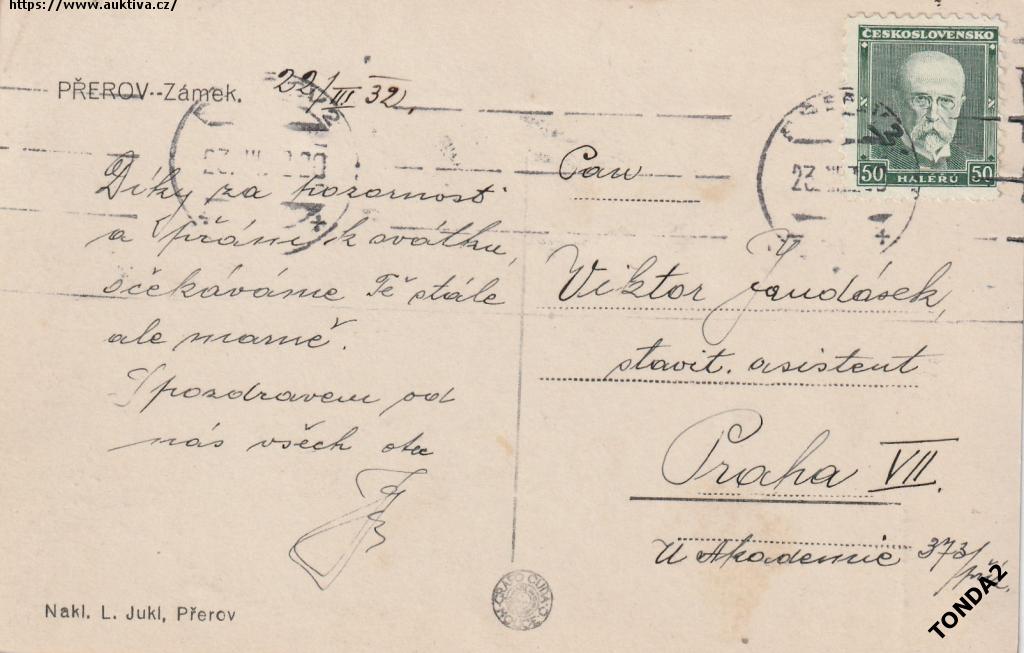 https://www.auktiva.cz/
PŘEROV--Zámek.
22/III 32.
Díky za pozornost
a přání k svátku,
očekáváme Tě stále
ale marně.
S pozdravem od
nás všech ota
ČESKOSLOVENSKO
50 HALÉŘŮ 50
23. III.
Pan
Viktor Jandásek,
stavit. asistent
Praha VII.
U Akademie 373/
Nakl. L. Jukl, Přerov
TONDA2